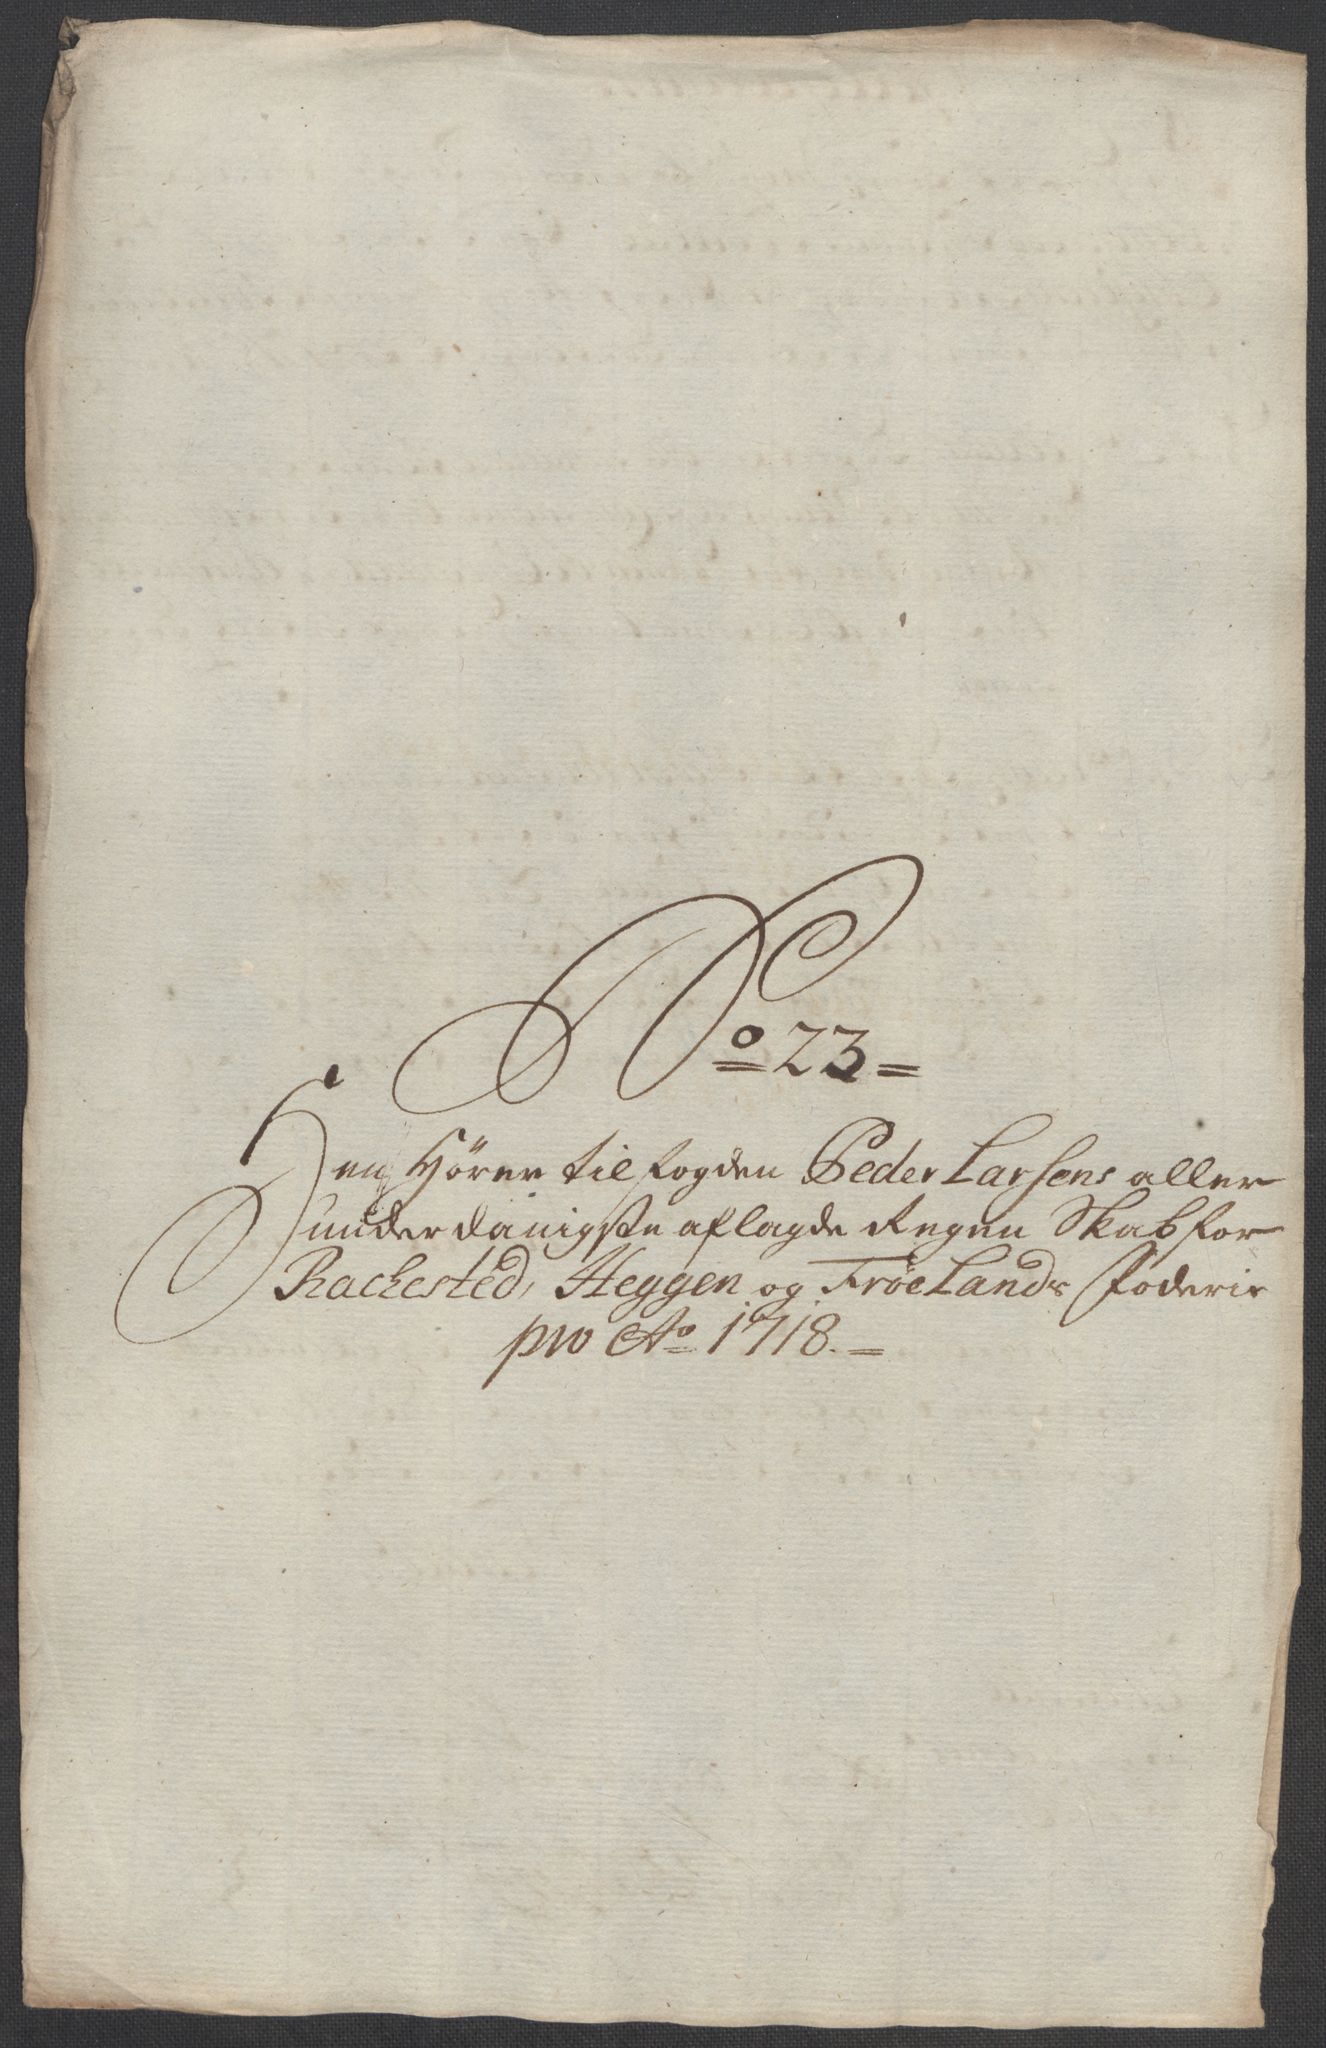 No 23=
Hen Hörer til fogden Peder Larsens aller
underdanigste aflagde Regenskab for
Rachested, Heggen og Frøelands foderie
pro Ao 1718.=